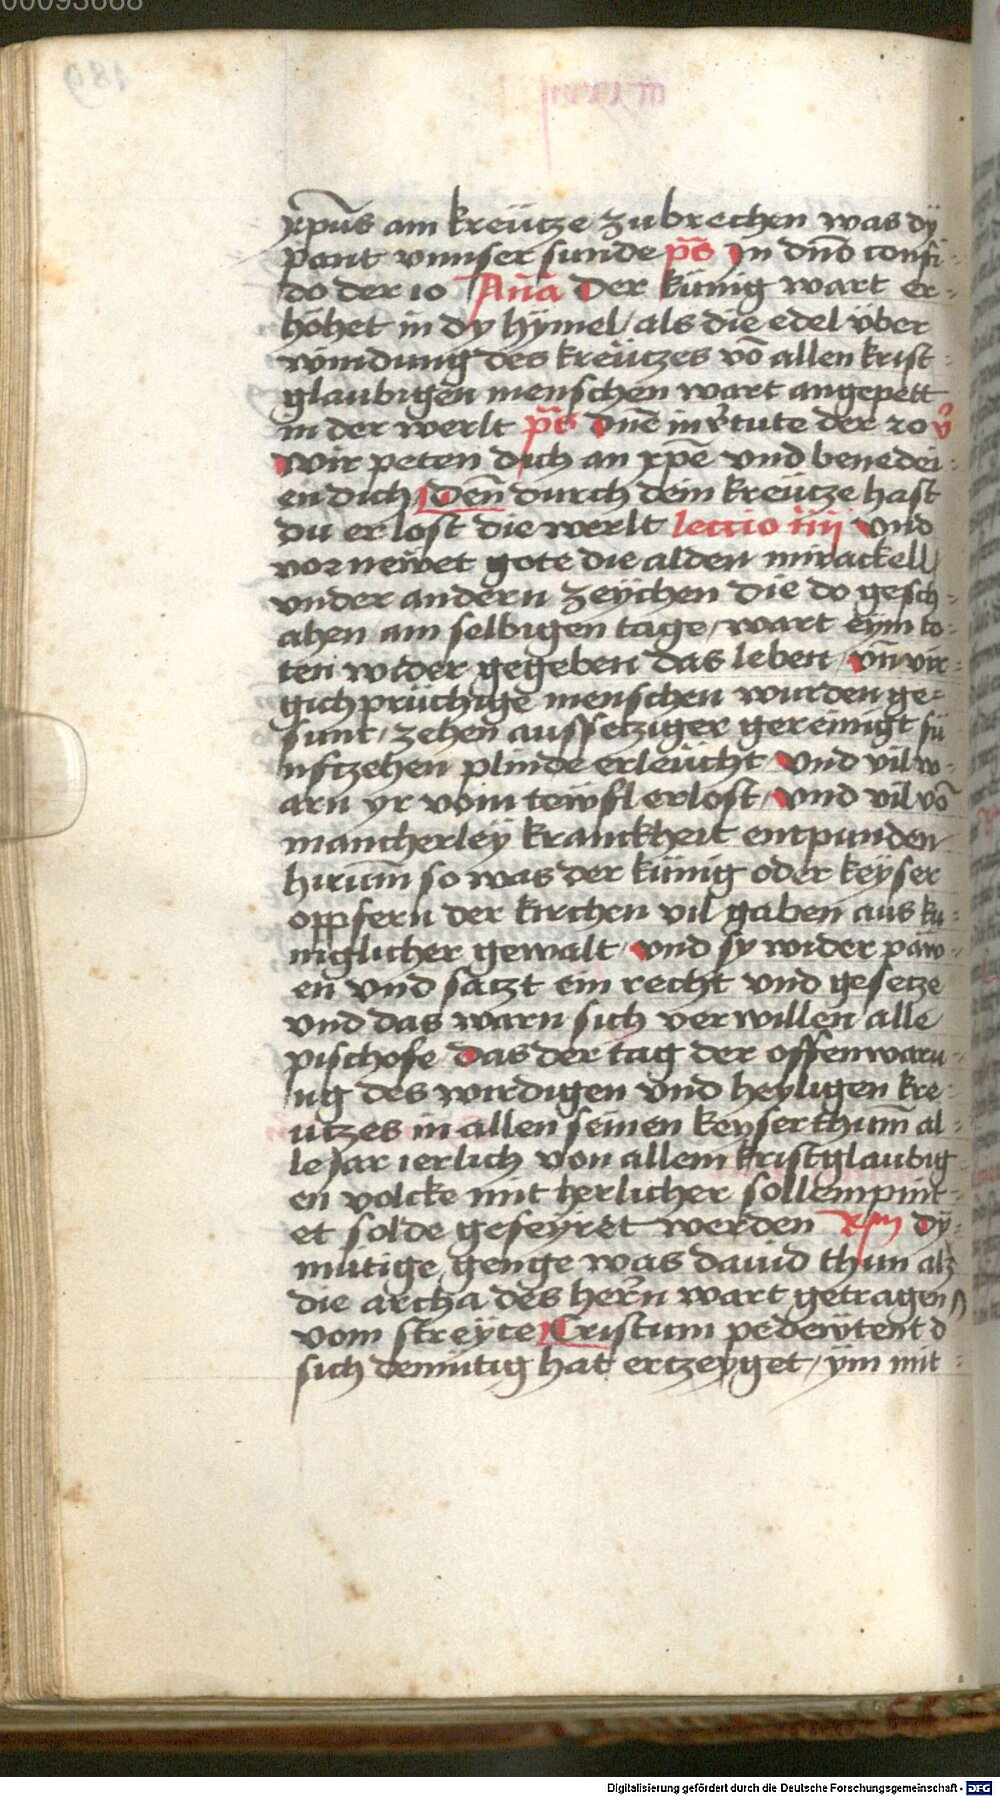 00093668
xp̄us am kreütze zubrechen was dy
pant vnnser sunde p̄s In dn̄o confi-
do der 10 Añā Der künig wart er-
höhet in dy hÿmel / als die edel über
windung des kreützes vō allen krist-
glaubigen menschen wart angepett
in der werlt p̄s Dn̄e in v̓tute der 20 v̊
Wir peten dich an xp̄e vnd benedei-
en dich Den̄ durch dein kreütze hast
du erlost die werlt leccio iiij Vnd
vorneẅet gote die alden mirackell /
vnder andern zeÿchen die do gesch-
ahen am selbigen tage / wart eÿm to-
ten wider gegeben das leben / vn̄ vir-
gichprüchige menschen wurden ge-
sunt / zehen aussetziger gereinigt fü
nftzehen plinde erleücht / Vnd vil w-
arn yr vom tewfl erlost / Vnd vil vō
mancherleÿ kranckheit entpunden /
hirum̄ so was der künig oder keÿser
oppfern der kirchen vil gaben aus kü-
niglicher gewalt / Vnd sy wider paw-
en vnd satzt ein recht vnd gesetze
vnd das warn sich verwillen alle
pischofe / Das der tag der offenwaru-
ng des wirdigen vnd heyligen kre-
utzes in allen seinen keyserthum̄ al-
le jar ierlich von allem kristglaubig-
en volcke mit herlicher sollempnit-
et solde gefeyret werden Rm̄ Dÿ-
mütige genge was dauid thun alz
die archa des herr̄n wart getragen
vom streÿte Cristum pedewtent d
sich demütig hat ertzeyget / ÿm mit-
Digitalisierung gefördert durch die Deutsche Forschungsgemeinschaft - DFG